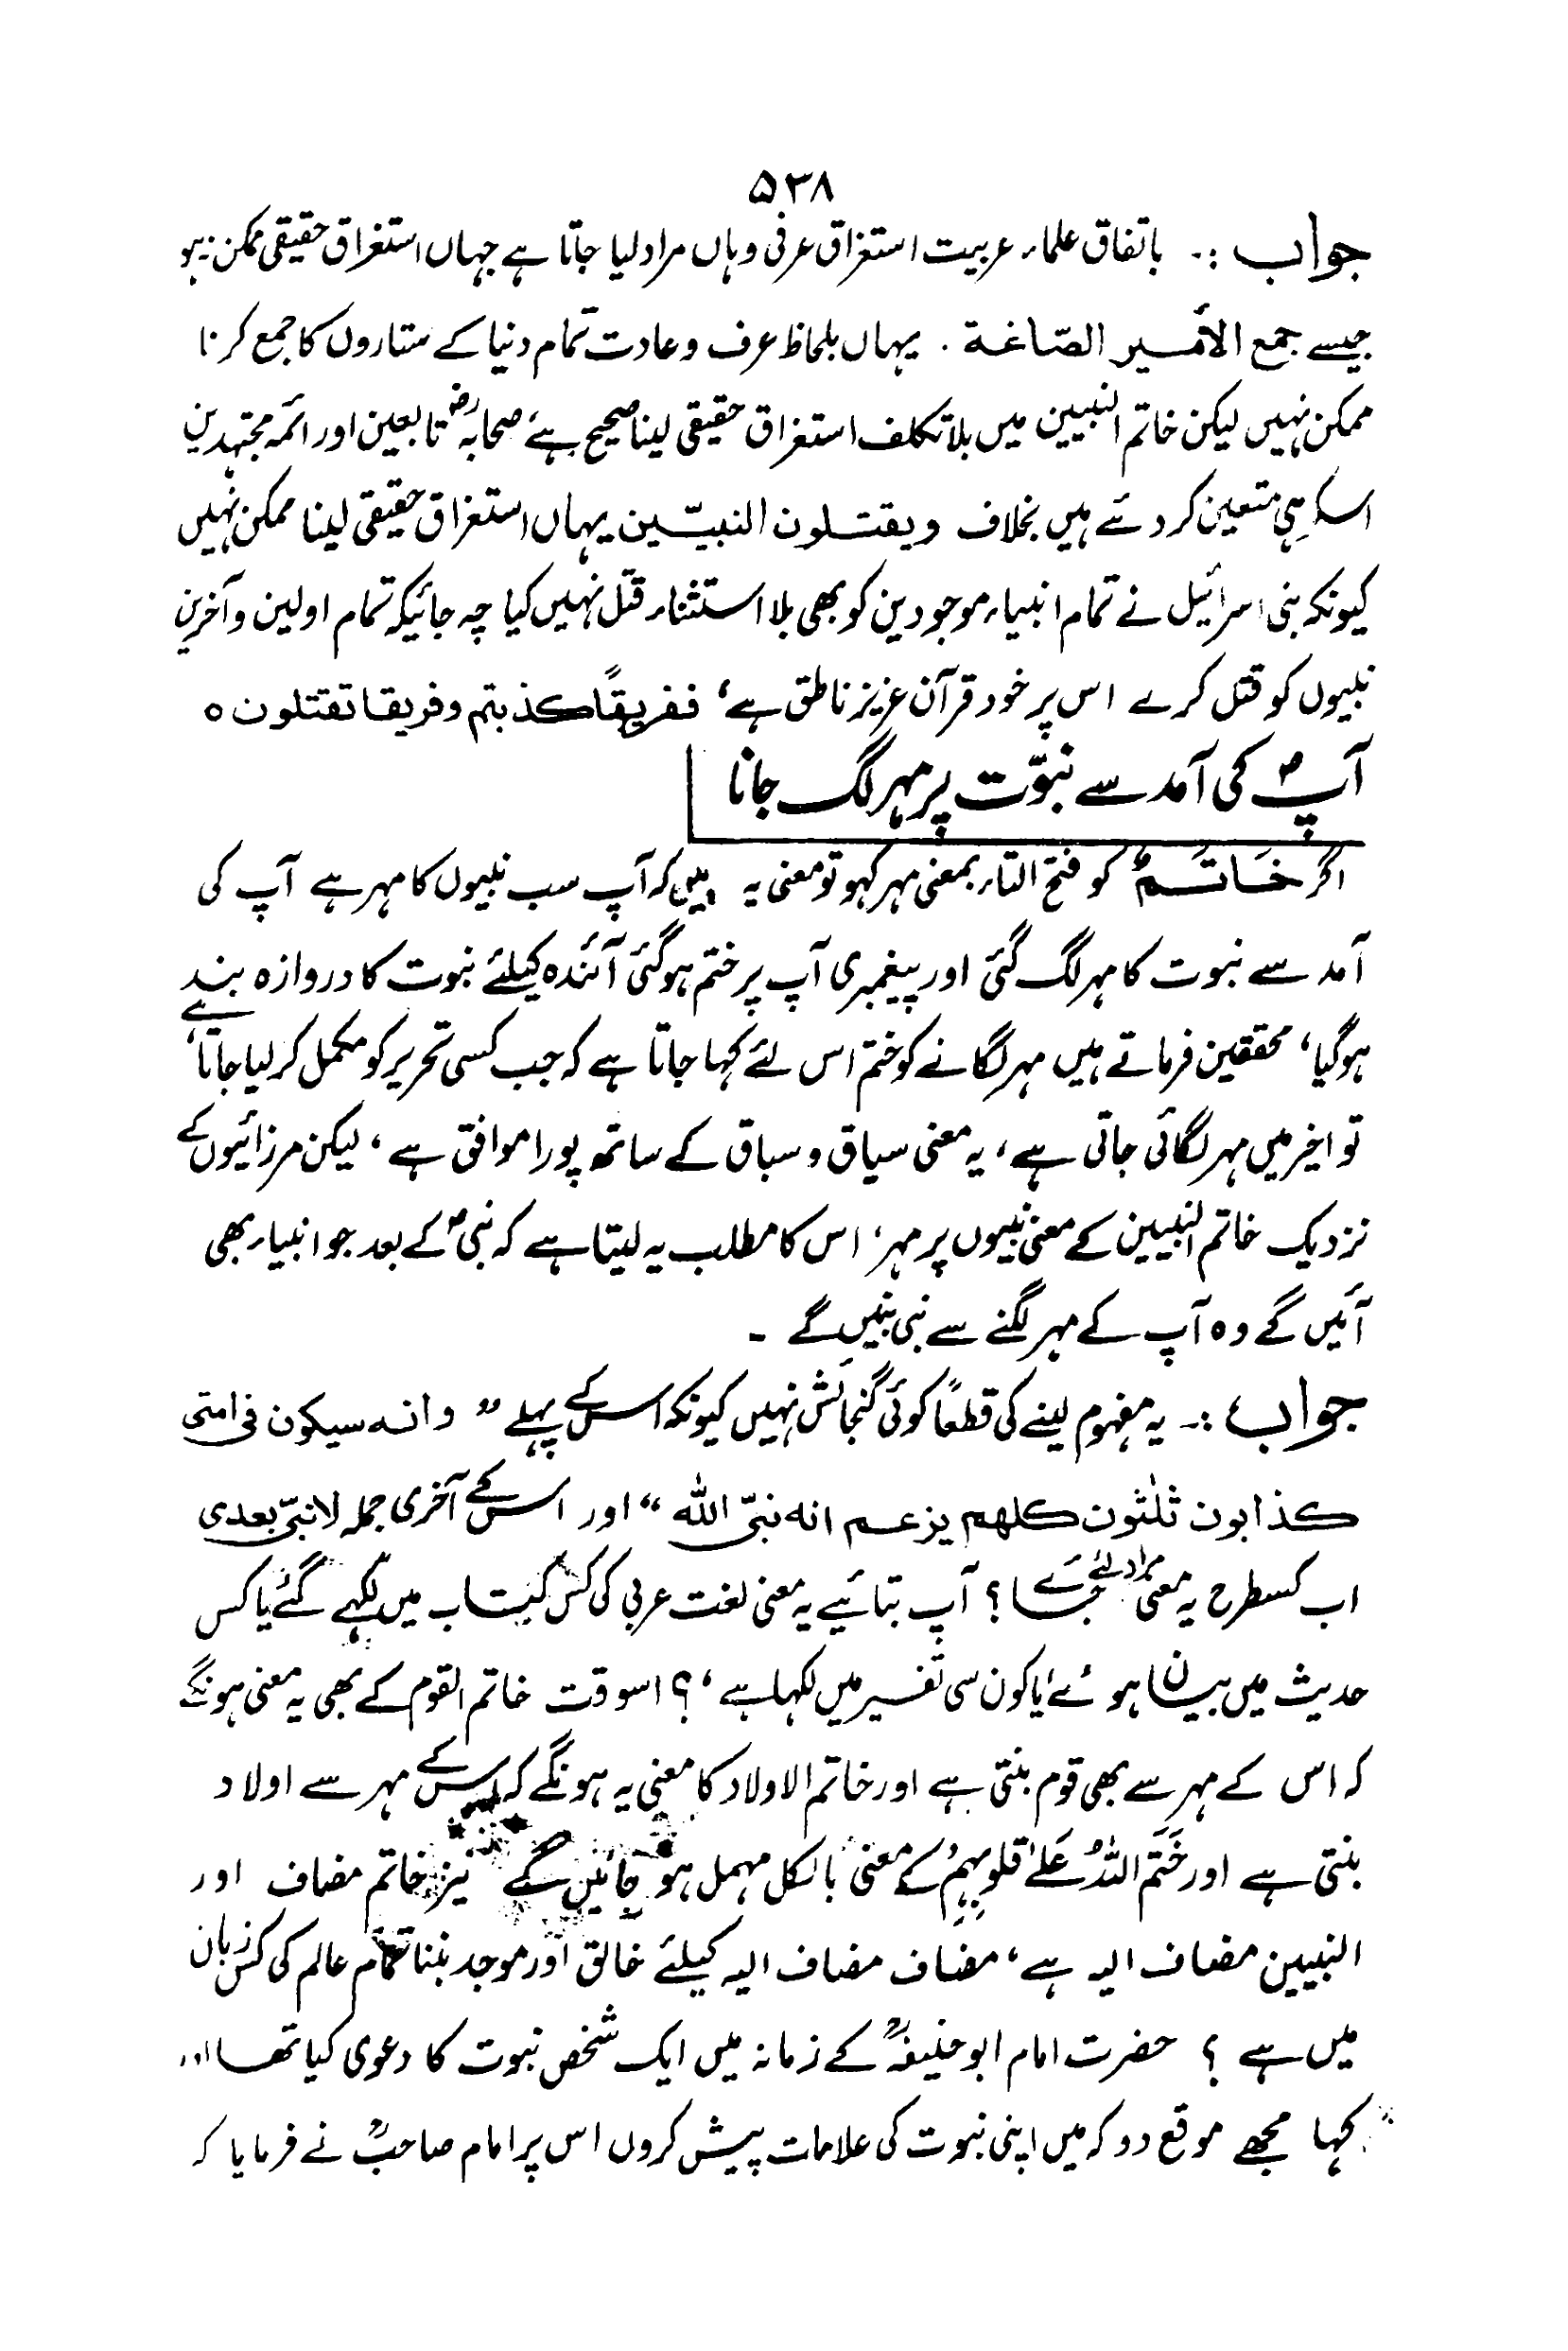 ۵۳۸
جواب :۔ باتفاق علماء عربیت استغراق عرفی وہاں مراد لیا جاتا ہے جہاں استغراق حقیقی ممکن نہ ہو
جیسے جمع الأمیر الصّاغة . یہاں بلحاظ عرف وعادت تمام دنیا کے ستاروں کا جمع کرنا
ممکن نہیں لیکن خاتم النبیین میں بلا تکلف استغراق حقیقی لینا صحیح ہے صحابہؓ تابعین اور ائمہ مجتہدین
اسکو ہی متعین کردئے ہیں بخلاف ویقتلون النبیّین یہاں استغراق حقیقی لینا ممکن نہیں
کیونکہ بنی اسرائیل نے تمام انبیاء موجودین کو بھی بلا استثناء قتل نہیں کیا چہ جائیکہ تمام اولین وآخرین
نبیوں کو قتل کرے اس پر خود قرآن عزیز ناطق ہے، ففریقًا کذبتم وفریقا تقتلون ہ
آپؐ کی آمد سے نبوّت پر مہر لگ جانا
اگر خَاتَمٌ کو فتح التاء بمعنی مہر کہو تو معنی یہ ہیں کہ آپ سب نبیوں کا مہر ہے آپ کی
آمد سے نبوت کا مہر لگ گئی اور پیغمبری آپ پر ختم ہوگئی آئندہ کیلئے نبوت کا دروازہ بند
ہوگیا، محققین فرماتے ہیں مہر لگانے کو ختم اس لئے کہا جاتا ہے کہ جب کسی تحریر کو مکمل کرلیا جاتا ہے،
تو اخیر میں مہر لگائی جاتی ہے، یہ معنی سیاق وسباق کے ساتھ پورا موافق ہے، لیکن مرزائیوں کے
نزدیک خاتم النبیین کے معنی نبیوں پر مہر، اس کا مطلب یہ لیتا ہے کہ نبیؐ کے بعد جو انبیاء بھی
آئیں گے وہ آپ کے مہر لگنے سے نبی بنیں گے ۔
جواب :۔ یہ مفہوم لینے کی قطعاً کوئی گنجائش نہیں کیونکہ اس کے پہلے " وانہ سیکون فی امتی
کذابون ثلٰثون کلھم یزعم انہ نبیّ اللہ " اور اس کے آخری جملہ لانبیّ بعدی
اب کسطرح یہ معنی مراد لئے جائے گا ؟ آپ بتائیے یہ معنی لغت عربی کی کس کتاب میں لکہے گئے یا کس
حدیث میں بیان ہوئے یا کون سی تفسیر میں لکہا ہے، ؟ اسوقت خاتم القوم کے بھی یہ معنی ہونگے
کہ اس کے مہر سے بھی قوم بنتی ہے اور خاتم الاولاد کا معنی یہ ہونگے کہ اس کے مہر سے اولاد
بنتی ہے اور خَتَم اللہُ عَلٰے قلوبِہِمْ کے معنی بالکل مہمل ہو جائیں گے نیز خاتم مضاف اور
النبیین مضاف الیہ ہے، مضاف مضاف الیہ کیلئے خالق اور موجد بننا تمام عالم کی کس زبان
میں ہے ؟ حضرت امام ابو حنیفہؒ کے زمانہ میں ایک شخص نبوت کا دعوی کیا تھا اور
کہا مجھے موقع دو کہ میں اپنی نبوت کی علامات پیش کروں اس پر امام صاحبؒ نے فرمایا کہ